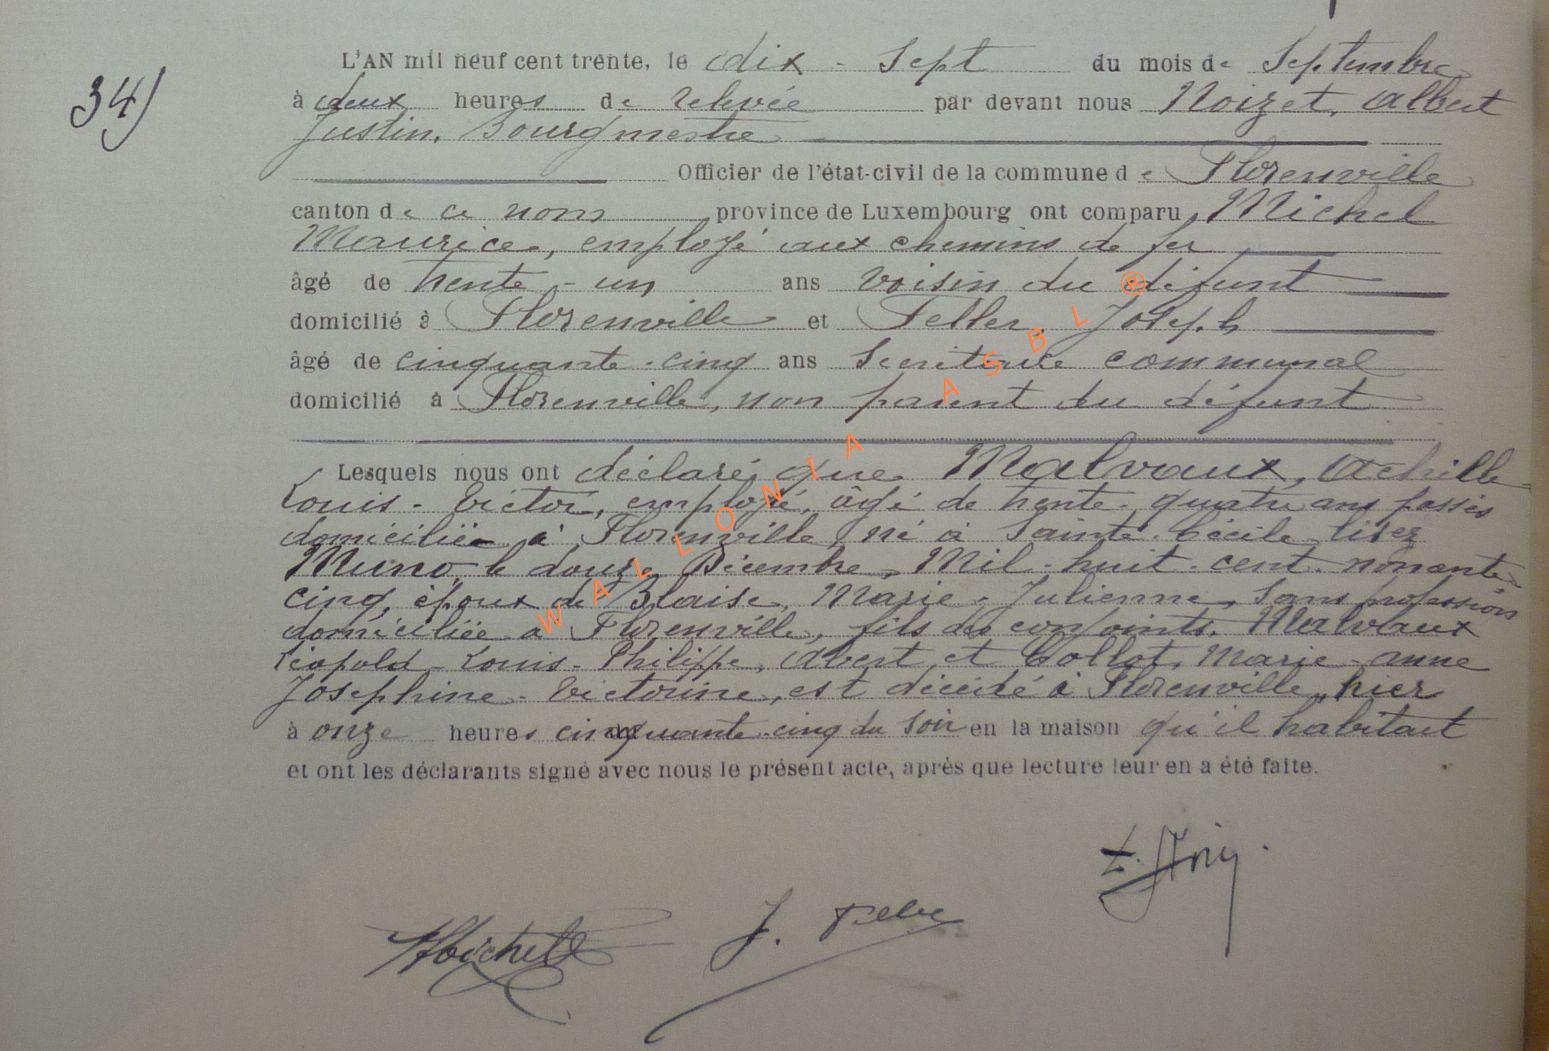 34)
L'AN mil neuf cent trente, le dix - sept du mois de Septembre
à deux heures de relevée par devant nous Noizet, Albert
Justin, Bourgmestre
Officier de l'état-civil de la commune de Florenville
canton de ce nom province de Luxembourg ont comparu Michel
Maurice, employé aux chemins de fer
âgé de trente - un ans voisin du défunt
domicilié à Florenville et Feller, Joseph
âgé de cinquante - cinq ans Secrétaire communal
domicilié à Florenville, non parent du défunt
Lesquels nous ont déclaré que Malvaux, Achille
Louis - Victor, employé, âgé de trente - quatre ans passés
domiciliée à Florenville né à Sainte - Cécile lisez
Muno le douze Décembre, Mil - huit - cent - nonante
cinq, époux de Blaise, Marie - Julienne, sans profession
domiciliée à Florenville, fils des conjoints, Malvaux
Léopold - Louis - Philippe, Albert et Collot, Marie - anne
Josephine - Victorine, est décédé à Florenville, hier
à onze heures cinquante - cinq du soir en la maison qu'il habitait
et ont les déclarants signé avec nous le présent acte, après que lecture leur en a été faite.
MMichel
J. Feller
WALLONIA ASBL ®